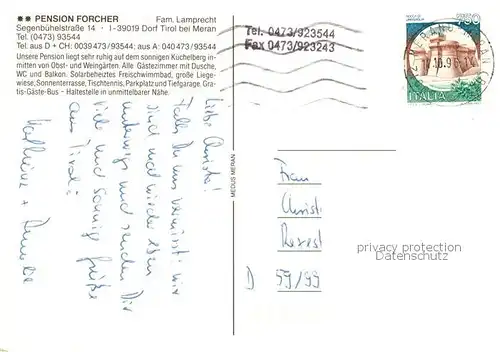 ** PENSION FORCHER Fam. Lamprecht
Segenbühelstraße 14 · I-39019 Dorf Tirol bei Meran
Tel. (0473) 93544
Tel. aus D + CH: 0039 473/93544: aus A: 040 473/93544
Unsere Pension liegt sehr ruhig auf dem sonnigen Küchelberg in-
mitten von Obst- und Weingärten. Alle Gästezimmer mit Dusche,
WC und Balkon. Solarbeheiztes Freischwimmbad, große Liege-
wiese, Sonnenterrasse, Tischtennis, Parkplatz und Tiefgarage. Gra-
tis-Gäste-Bus - Haltestelle in unmittelbarer Nähe.
Tel. 0473/923544
Fax 0473/923243
750
ITALIA
MERANO
Liebe Christa!
Falls Du uns vermisst: wir
sind mal wieder
unterwegs und senden Dir
viele und sonnige Grüße
aus Tirol!
+
MEDUS MERAN
Frau
Christ
D
privacy protection
Datenschutz